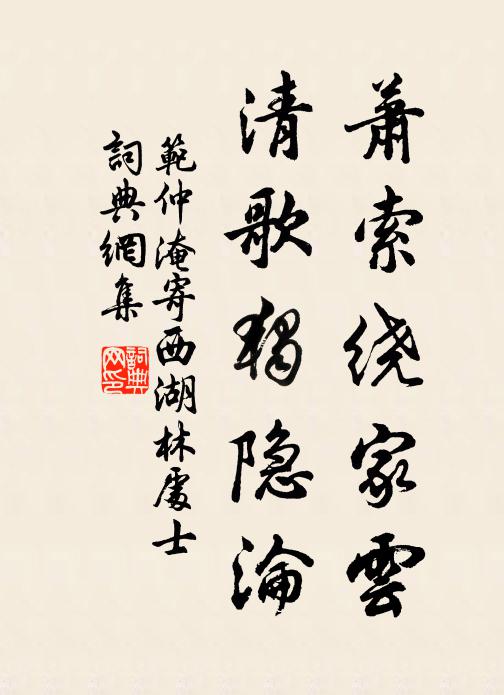 蕭索绕家雲
清歌獨隐淪
範仲淹寄西湖林處士
詞典網集
詞典网印